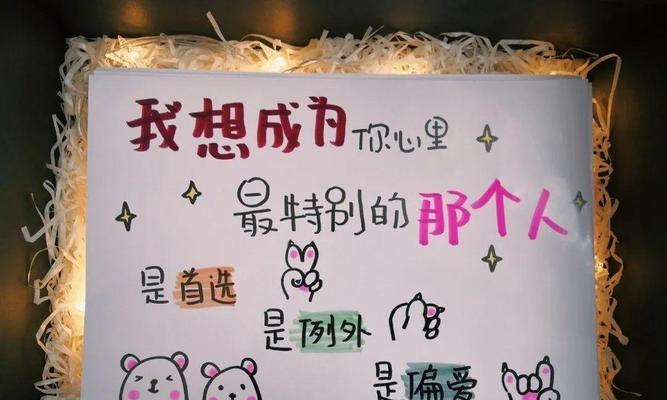 我想成为你心里
最特别的那个人
是首选
是例外
是偏爱